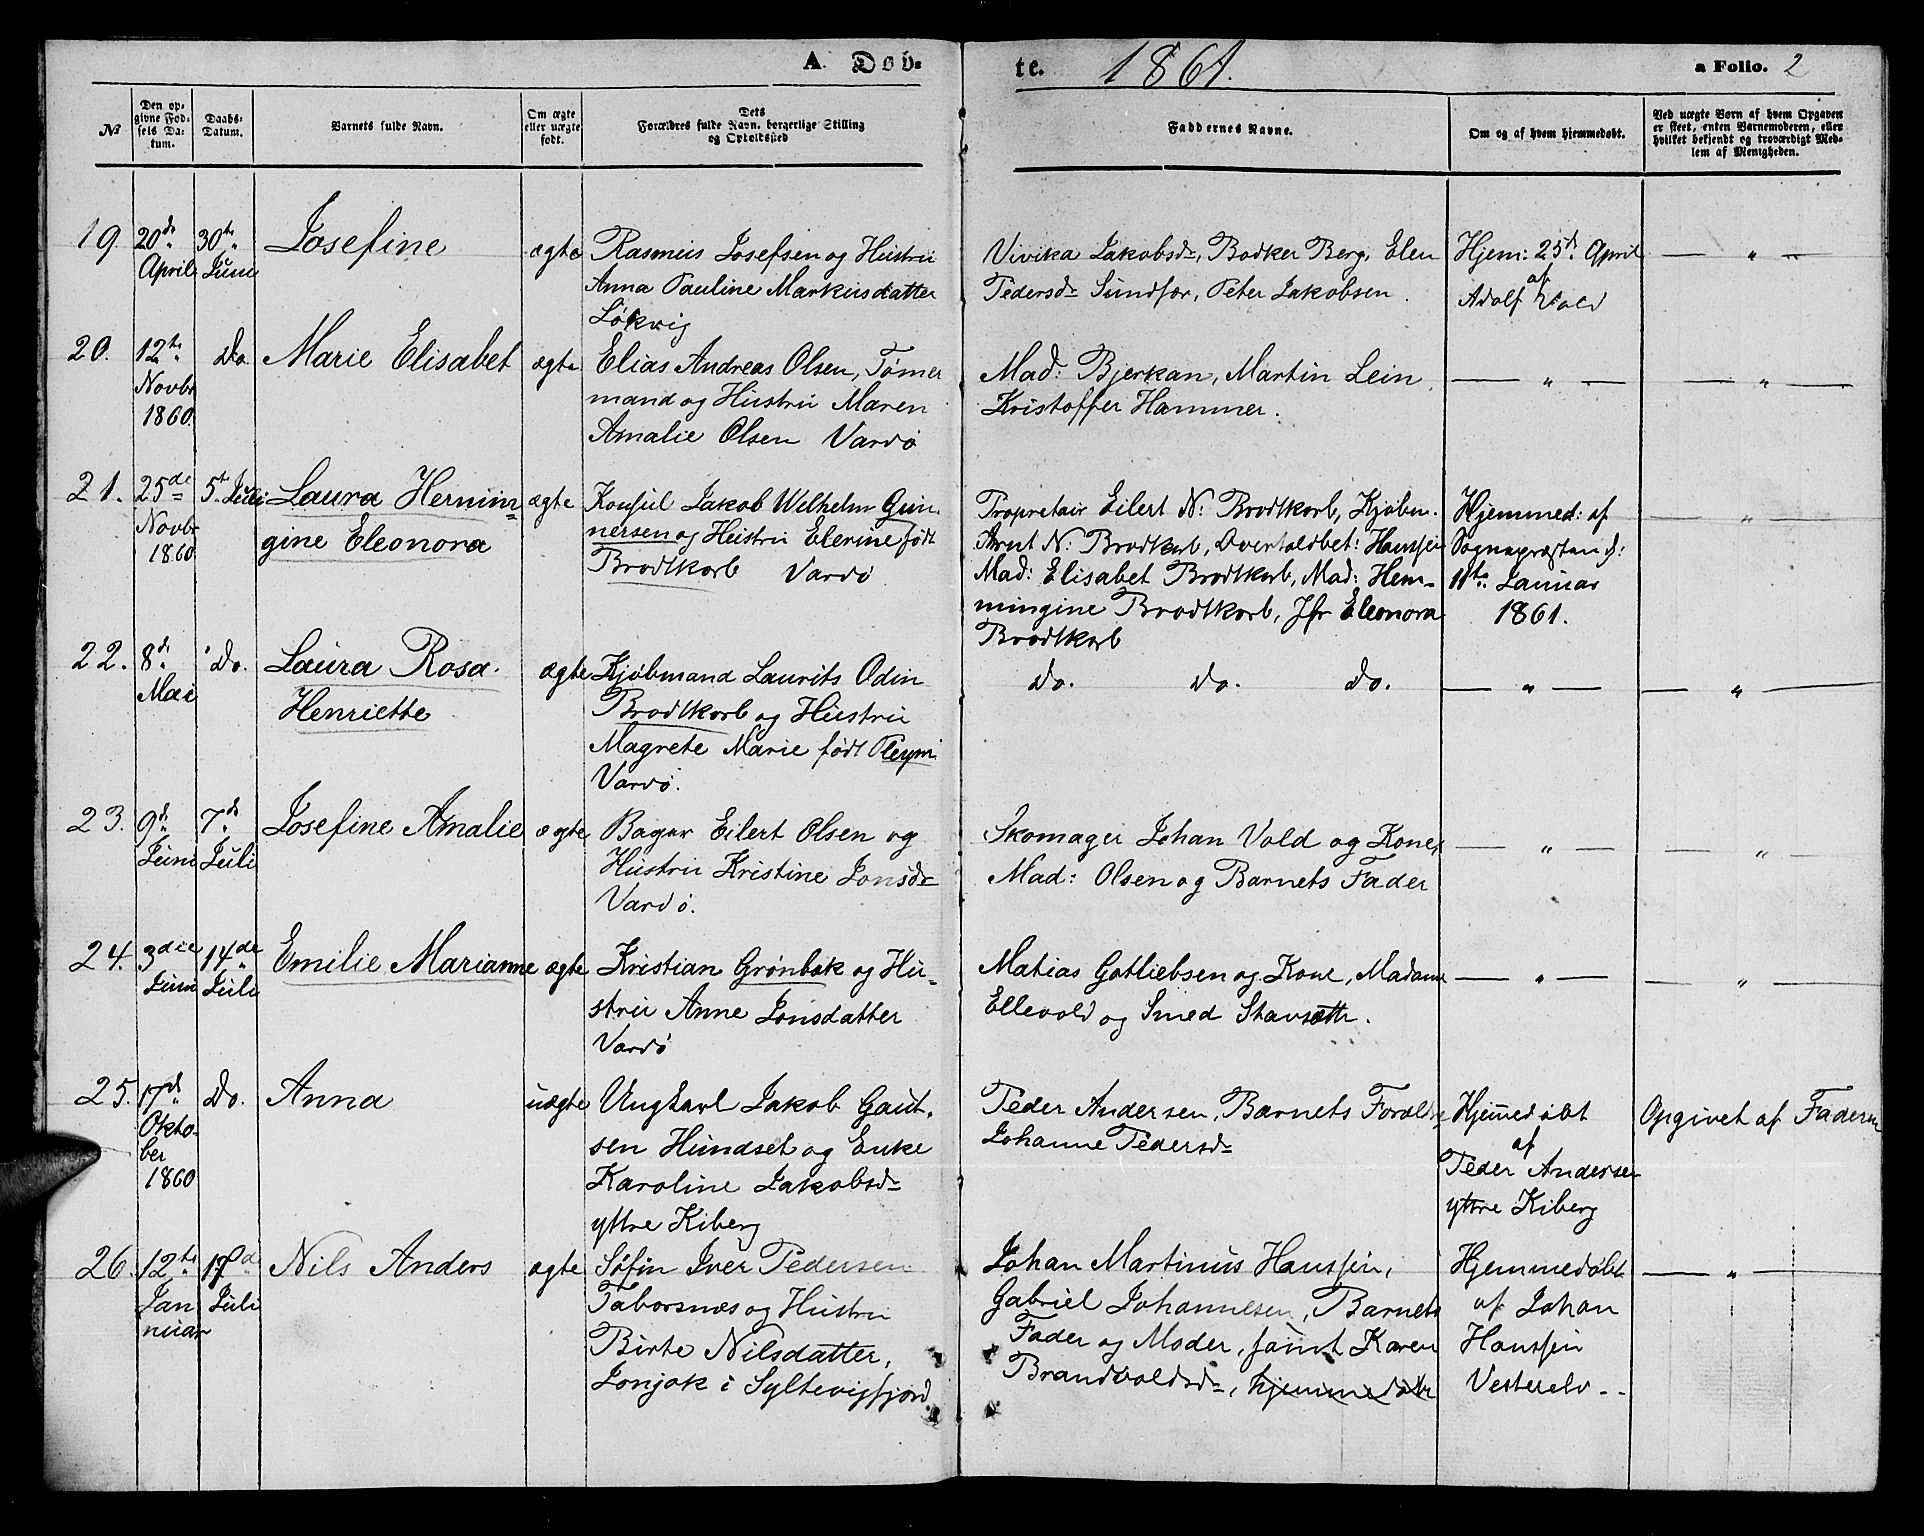 A. Døb-
te. 1861.
a Folio. 2
№
Den op-
givne Fød-
sels Da-
tum.
Daabs-
Datum.
Barnets fulde Navn.
Om ægte
eller uægte
født.
Dets
Forældres fulde Navn, borgerlige Stilling
og Opholdssted
Faddernes Navne.
Om og af hvem hjemmedøbt.
Ved uægte Børn af hvem Opgaven
er skeet, enten Barnemoderen, eller
hvilket bekjendt og troværdigt Med-
lem af Menigheden.
19. 20de April 30te Juni Josefine ægte
Rasmus Josefsen og Hustru
Anna Pauline Markusdatter
Løkvig
Vivika Jakobsdr, Bødker Berg, Elen
Pedersdr Sundfær, Peter Jakobsen.
Hjem: 25de April
af
Adolf Vold
— „ —
20. 12te Novbr 1860 Do. Marie Elisabet ægte
Elias Andreas Olsen, Tømer
mand og Hustru Maren
Amalie Olsen Vardø
Mad: Bjerkan, Martin Lein,
Kristoffer Hammer.
— „ —
— „ —
21. 25de Novbr 1860 5te Juli Laura Hermin=
gine Eleonora ægte
Konsul Jakob Welhelm Gun-
nersen og Hustru Elerine født
Brodtkorb Vardø
Propretair Eilert N: Brodtkorb, Kjøbm.
Arnt N: Brodtkorb, Overtoldbet: Hanssen
Mad: Elisabet Brodtkorb, Mad: Hem-
mingine Brodtkorb, Jfr Eleonora
Brodtkorb
Hjemmed: af
Sognepræsten d:
11te Januar
1861.
— „ —
22. 8de Mai Do. Laura Rosa
Henriette ægte
Kjøbmand Laurits Odin
Brodtkorb og Hustru
Magrete Marie født Pleym
Vardø.
Do. Do. Do.
— „ —
— „ —
23. 9de Juni 7de Juli Josefine Amalie ægte
Bager Eilert Olsen og
Hustru Kristine Jonsdr
Vardø.
Skomager Johan Vold og Kone,
Mad: Olsen og Barnets Fader
— „ —
— „ —
24. 3die Juni 14de Juli Emilie Marianne ægte
Kristian Grønbæk og Hu-
stru Anne Jonsdatter
Vardø
Matias Gotliebsen og Kone, Madame
Ellevold og Smed Stavsætr.
— „ —
— „ —
25. 17de Oktober 1860 Do. Anna uægte
Ungkarl Jakob Gaut-
sen Hundset og Enke
Karoline Jakobsdr
yttre Kiberg
Peder Andersen, Barnets Forældre
Johanne Pedersdr
Hjemmedøbt
af
Peder Andersen
yttre Kiberg
Opgivet af Faderen
26. 12te Januar 17de Juli Nils Anders ægte
Søfin Iver Pedersen
Taborsnæs og Hustru
Birte Nilsdatter,
Jonjok i Syltevigfjord
Johan Martinus Hanssen,
Gabriel Johannesen, Barnets
Fader og Moder, samt Karen
Brandvoldsdr, hjemmedøbt
Hjemmedøbt
af Johan
Hanssen
Vesterelv.
— „ —